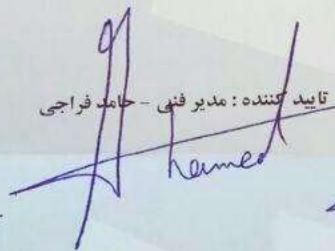 تایید کننده : مدیر فنی - حامد فراجی
Hamed